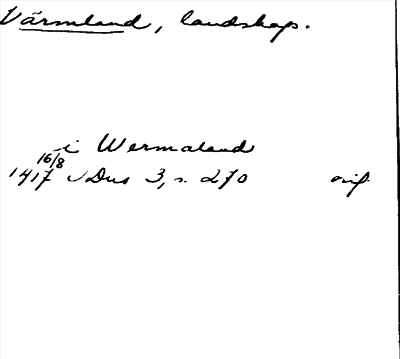 Värmland, landskap.
i Wermaland
16/8
1417 Dus 3, s. 270 orig.